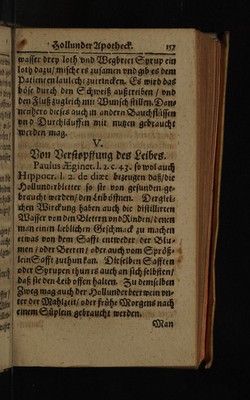 Hollunder Apotheck. 157
wasser drey loth und Wegbriet Syrup ein
loth dazu/ mische es zusamen und gib es dem
Patienten laulecht zutrincken. Es wird das
böse durch den Schweiß außtreiben / und
den Fluß zugleich mit Wunsch stillen. Dan-
nenhero dieses auch in andern Bauchflüssen
und Durchläuffen mit nutzen gebraucht
werden mag.
V.
Von Verstopffung des Leibes.
Paulus Æginet. l. 1. c. 43. so wol auch
Hippocr. l. 2. de diæt. bezeugen daß/die
Hollunderbletter so sie von gesunden ge-
braucht werden/den Leib öffnen. Derglei-
chen Wirckung haben auch die distillirten
Wasser von den Bletern und Rinden/ denen
man einen lieblichern Geschmack zu machen
etwas von dem Safft entweder der Blu-
men / oder Beeren / oder auch vom Spröß-
lein Safft zuthun kan. Ditselben Safften
oder Syrupen thun es auch an sich selbsten/
daß sie den Leib offen halten. Zu demselben
Zweg mag auch der Hollunderbeerwein un-
ter der Mahlzeit / oder frühe Morgens nach
einem Süplein gebraucht werden.
Man